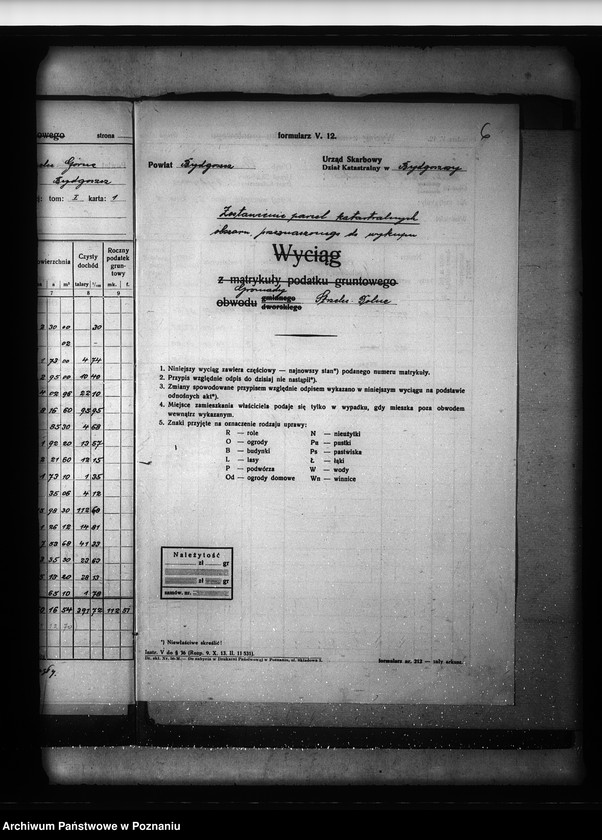 owego strona
Górne
Bydgoszcz
tom: I karta: 1
owierzchnia
Czysty dochód
Roczny podatek gruntowy
a m² talary ¹/₁₀₀ mk. f.
7 8 9
2 30 10 30
02 -
1 73 00 4 74
2 95 00 10 40
4 02 96 22 10
8 16 60 95 95
85 30 4 68
1 92 20 13 57
2 21 60 12 15
1 73 10 1 35
35 06 4 12
98 30 112 68
1 26 12 14 81
53 68 41 33
35 30 23 63
13 20 28 13
65 10 1 78
16 54 391 72 112 51
6
formularz V. 12.
Powiat Bydgoszcz
Urząd Skarbowy
Dział Katastralny w Bydgoszczy
Zestawienie parcel katastralnych
obszaru, przeznaczonego do wykupu
Wyciąg
z matrykuły podatku gruntowego
Gromady
obwodu gminnego dworskiego Dolne
1. Niniejszy wyciąg zawiera częściowy — najnowszy stan*) podanego numeru matrykuły.
2. Przypis względnie odpis do dzisiaj nie nastąpił*).
3. Zmiany spowodowane przypisem względnie odpisem wykazano w niniejszym wyciągu na podstawie
odnośnych akt*).
4. Miejsce zamieszkania właściciela podaje się tylko w wypadku, gdy mieszka poza obwodem
wewnątrz wykazanym.
5. Znaki przyjęte na oznaczenie rodzaju uprawy:
R — role N — nieużytki
O — ogrody Pu — pustki
B — budynki Ps — pastwiska
L — lasy Ł — łąki
P — podwórza W — wody
Od — ogrody domowe Wn — winnice
Należytość
zł gr
zł gr
zamów. nr.
*) Niewłaściwe skreślić!
Instr. V do § 36 (Rozp. 9. X. 13. II. 11 531).
formularz nr. 213 — cały arkusz.
Archiwum Państwowe w Poznaniu